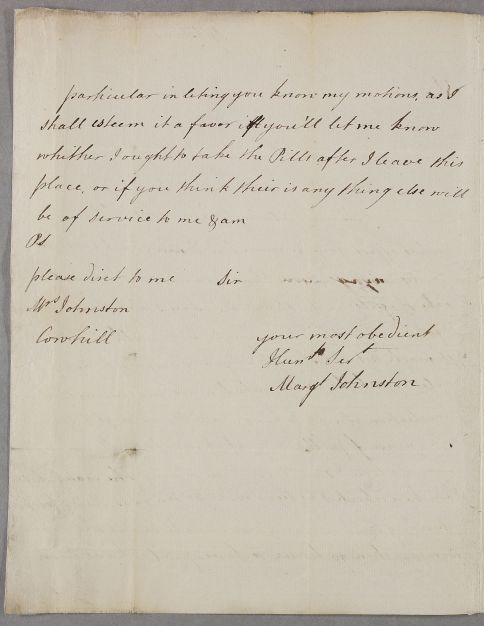 particular in leting you know my motions, as I
shall esteem it a favor if you'll let me know
whither I ought to take the Pills after I leave this
place, or if you think their is any thing else will
be of service to me & am
Ps
please diret to me Sir
Mrs Johnston
Cowhill
your most obedient
Humle Sert
Margt Johnston